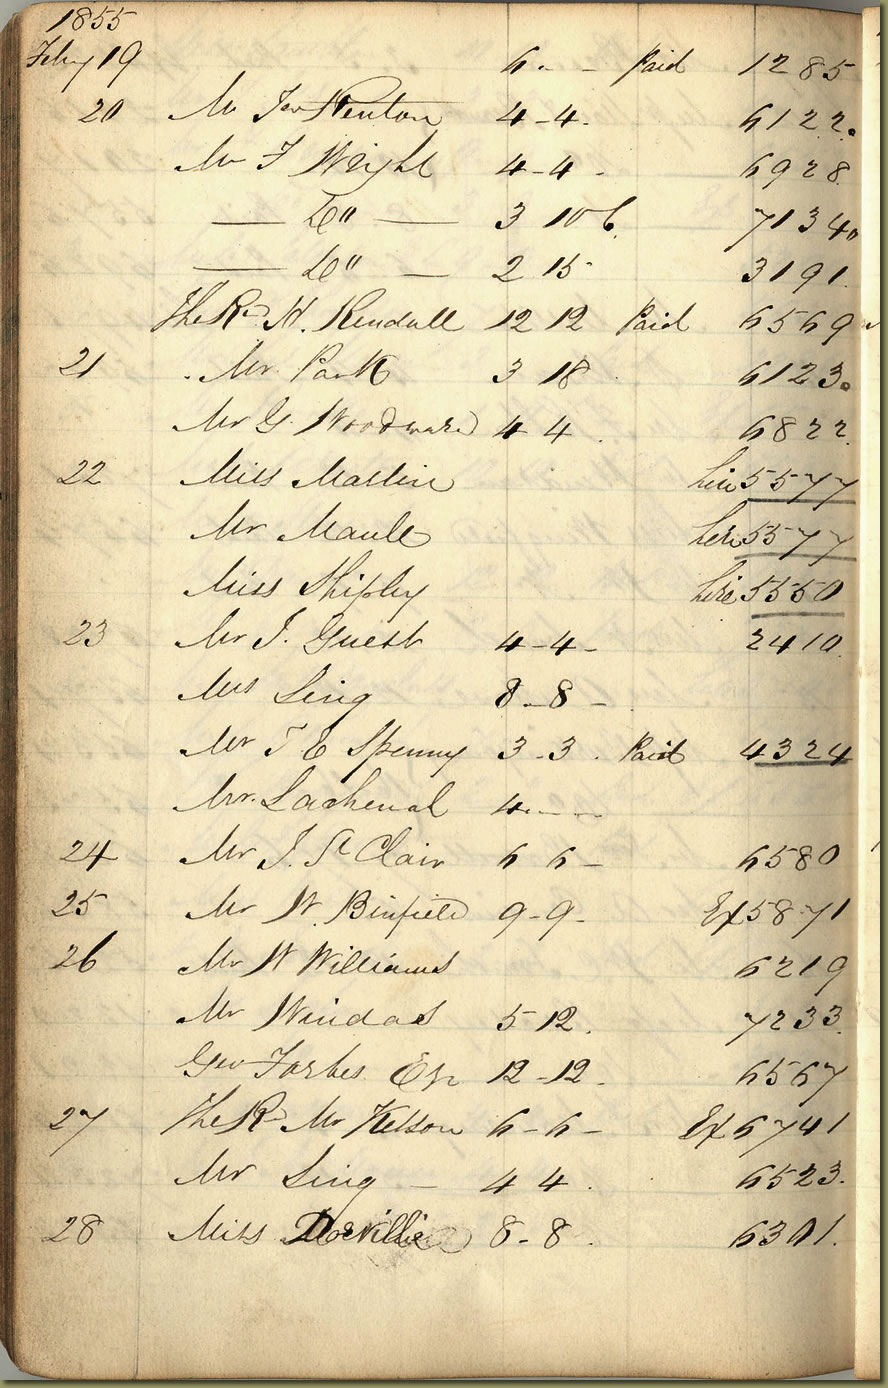 1855
Feby 19 6 - - Paid 1285
20 Mr Jas Newton 4-4. 6122.
Mr F Wright 4-4 - 6928
— Do" — 3 10 6 7134
— Do" — 2 15 3191.
The Rd H. Kendall 12 12 Paid 6569
21 Mr Park 3 18 6123.
Mr G Woodward 4 4 6822
22 Miss Martin hire 5577
Mr Maule hire 5577
Miss Shipley hire 5550
23 Mr J. Guest 4-4- 2410
Mrs Sing 8-8 -
Mr T E Spenny 3-3. Paid 4324
Mr. Lachenal 4 - -
24 Mr J. St Clair 6 6 - 6580
25 Mr W. Binfield 9-9- Ex 5871
26 Mr W Williams 6219
Mr Windas 5 12. 7233
Geo Forbes Esq 12-12. 6567
27 The Rd Mr Kelson 6-6- Ex 6741
Mr Sing - 4 4. 6523.
28 Miss 8-8. 6301.